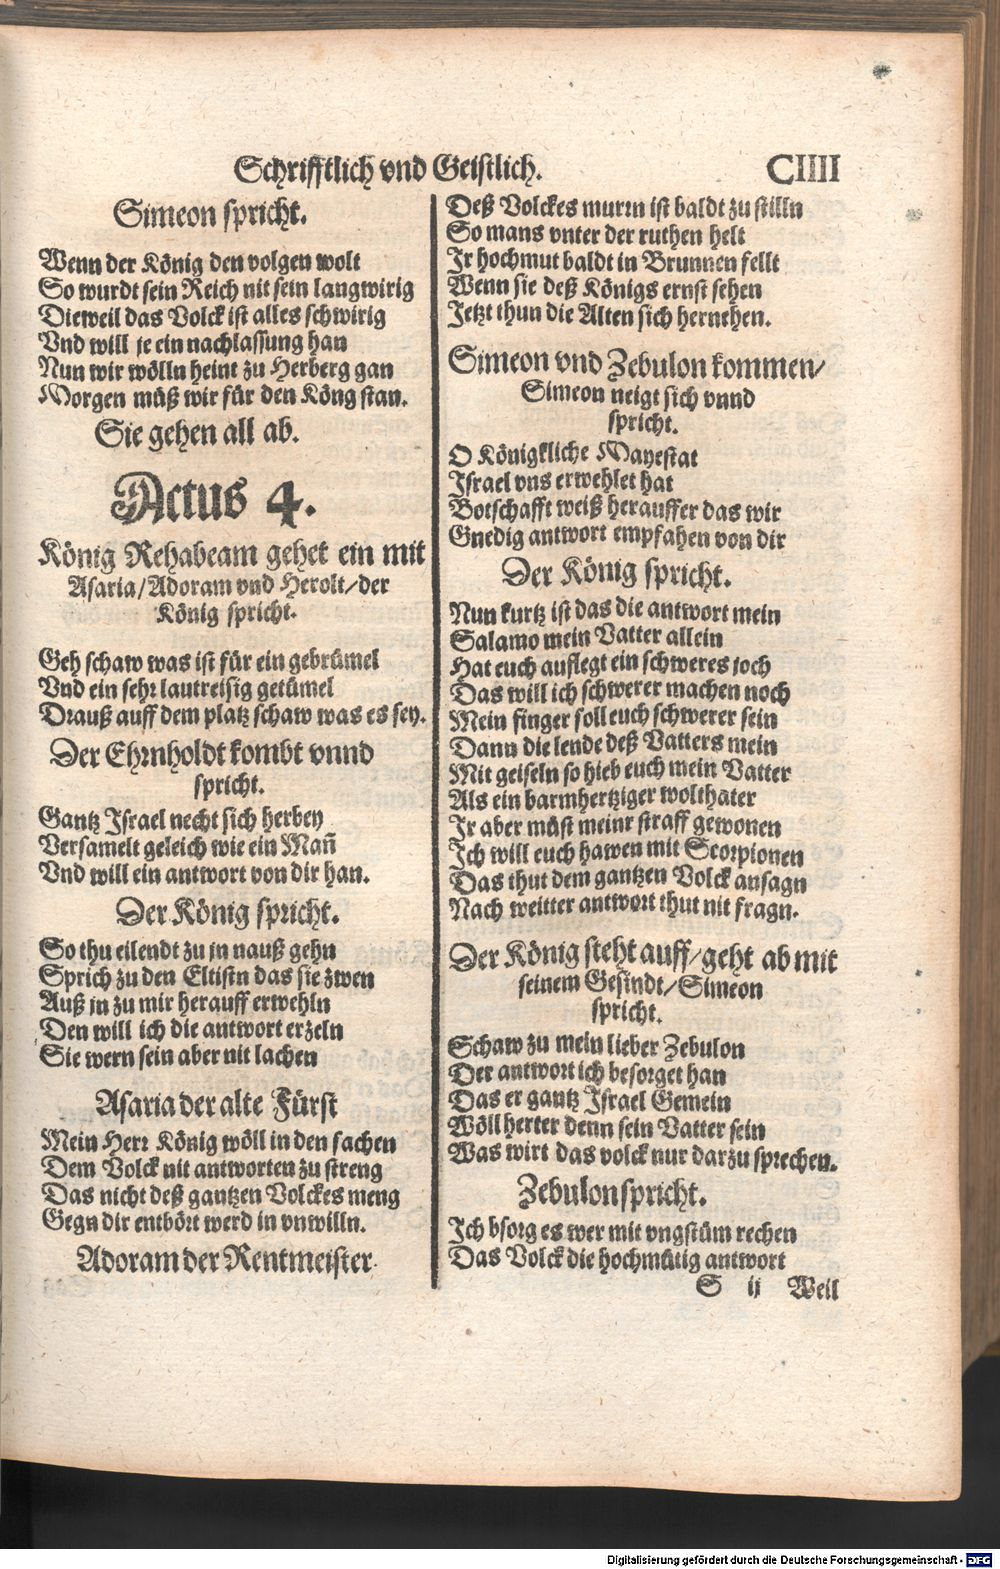 Schrifftlich vnd Geistlich. CIIII
Simeon spricht.
Wenn der König den volgen wolt
So wurdt sein Reich nit sein langwirig
Dieweil das Volck ist alles schwirig
Vnd will je ein nachlassung han
Nun wir wölln heint zu Herberg gan
Morgen müß wir für den Köng stan.
Sie gehen all ab.
Actus 4.
König Rehabeam gehet ein mit
Asaria/Adoram vnd Herolt/der
König spricht.
Geh schaw was ist für ein gebrümel
Vnd ein sehr lautreisig getümel
Drauß auff dem platz schaw was es sey.
Der Ehrnholdt kombt vnnd
spricht.
Gantz Israel necht sich herbey
Versamelt geleich wie ein Mañ
Vnd will ein antwort von dir han.
Der König spricht.
So thu eilendt zu jn nauß gehn
Sprich zu den Eltistn das sie zwen
Auß jn zu mir herauff erwehln
Den will ich die antwort erzeln
Sie wern sein aber nit lachen
Asaria der alte Fürst
Mein Herr König wöll in den sachen
Dem Volck nit antworten zu streng
Das nicht deß gantzen Volckes meng
Gegn dir entbört werd in vnwilln.
Adoram der Rentmeister.
Deß Volckes murrn ist baldt zu stilln
So mans vnter der ruthen helt
Jr hochmut baldt in Brunnen fellt
Wenn sie deß Königs ernst sehen
Jetzt thun die Alten sich hernehen.
Simeon vnd Zebulon kommen/
Simeon neigt sich vnnd
spricht.
O Königkliche Mayestat
Israel vns erwehlet hat
Botschafft weiß herauffer das wir
Gnedig antwort empfahen von dir
Der König spricht.
Nun kurtz ist das die antwort mein
Salamo mein Vatter allein
Hat euch auflegt ein schweres joch
Das will ich schwerer machen noch
Mein finger soll euch schwerer sein
Dann die lende deß Vatters mein
Mit geiseln so hieb euch mein Vatter
Als ein barmhertziger wolthater
Jr aber müst meinr straff gewonen
Ich will euch hawen mit Scorpionen
Das thut dem gantzen Volck ansagn
Nach weitter antwort thut nit fragn.
Der König steht auff/geht ab mit
seinem Gesindt/Simeon
spricht.
Schaw zu mein lieber Zebulon
Der antwort ich besorget han
Das er gantz Israel Gemein
Wöll herter denn sein Vatter sein
Was wirt das volck nur darzu sprechen.
Zebulon spricht.
Ich bsorg es wer mit vngstüm rechen
Das Volck die hochmütig antwort
S ij Weil
Digitalisierung gefördert durch die Deutsche Forschungsgemeinschaft - DFG